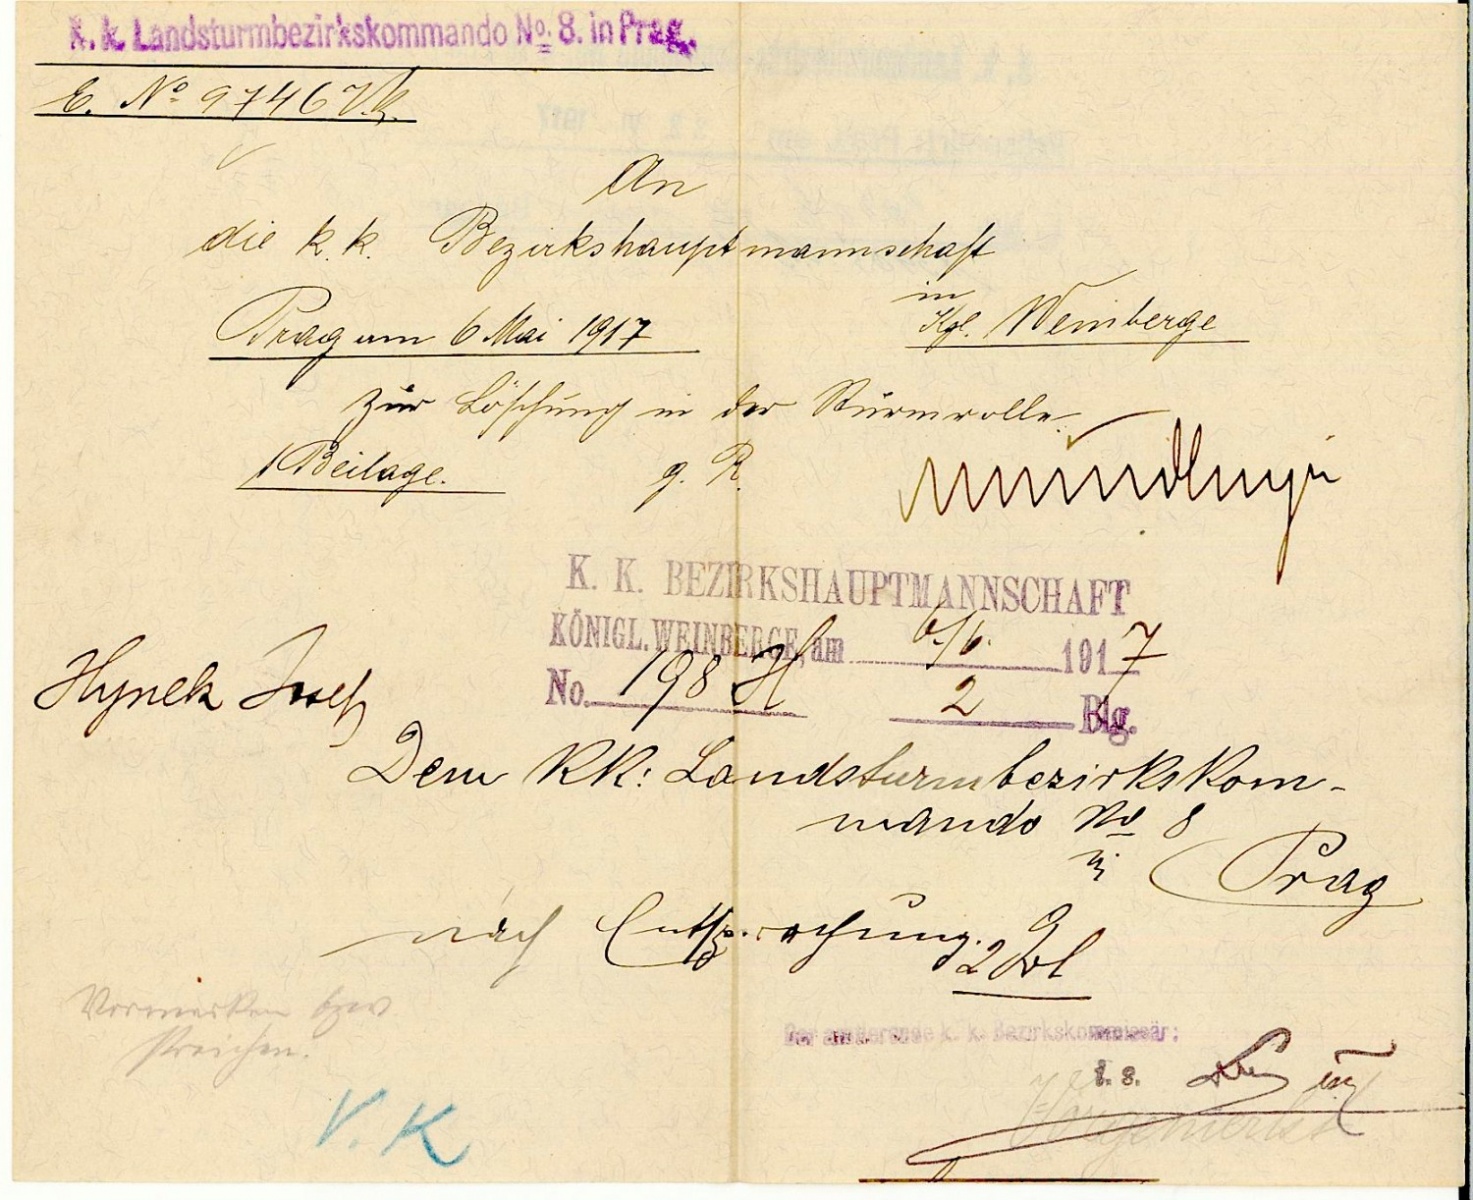 k. k. Landsturmbezirkskommando No. 8. in Prag.
E. No 9746 V.k.
An
die k. k. Bezirkshauptmannschaft
in
Kgl. Weinberge
Prag am 6 Mai 1917
zur Löschung in der Sturmrolle.
1 Beilage. g. R.
K. K. BEZIRKSHAUPTMANNSCHAFT
KÖNIGL. WEINBERGE, am 6/6. 1917
No. 198 H 2 Blg.
Hynek Josef
Dem KK: Landsturmbezirkskom-
mando No 8
in
Prag
nach Entsprechung.
2
Vormerken bzw
streichen.
k. k. Bezirkskommissär:
V. K
Vorgemerkt